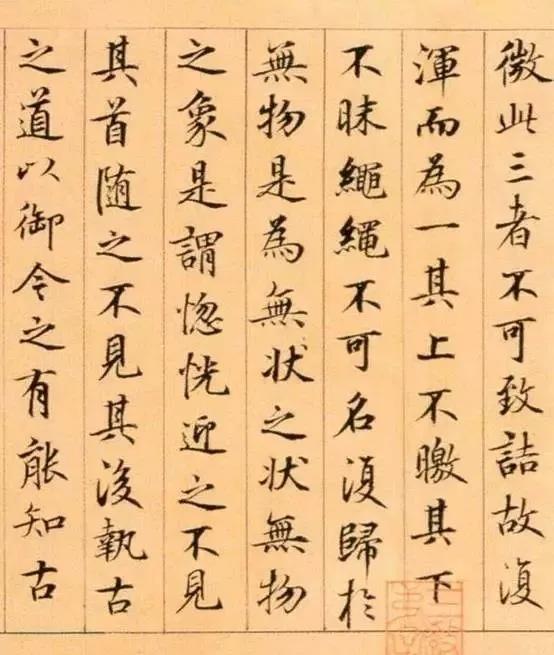 微此三者不可致詰故復
渾而為一其上不皦其下
不昧繩繩不可名復歸於
無物是為無状之状無物
之象是謂惚恍迎之不見
其首随之不見其後執古
之道以御今之有能知古